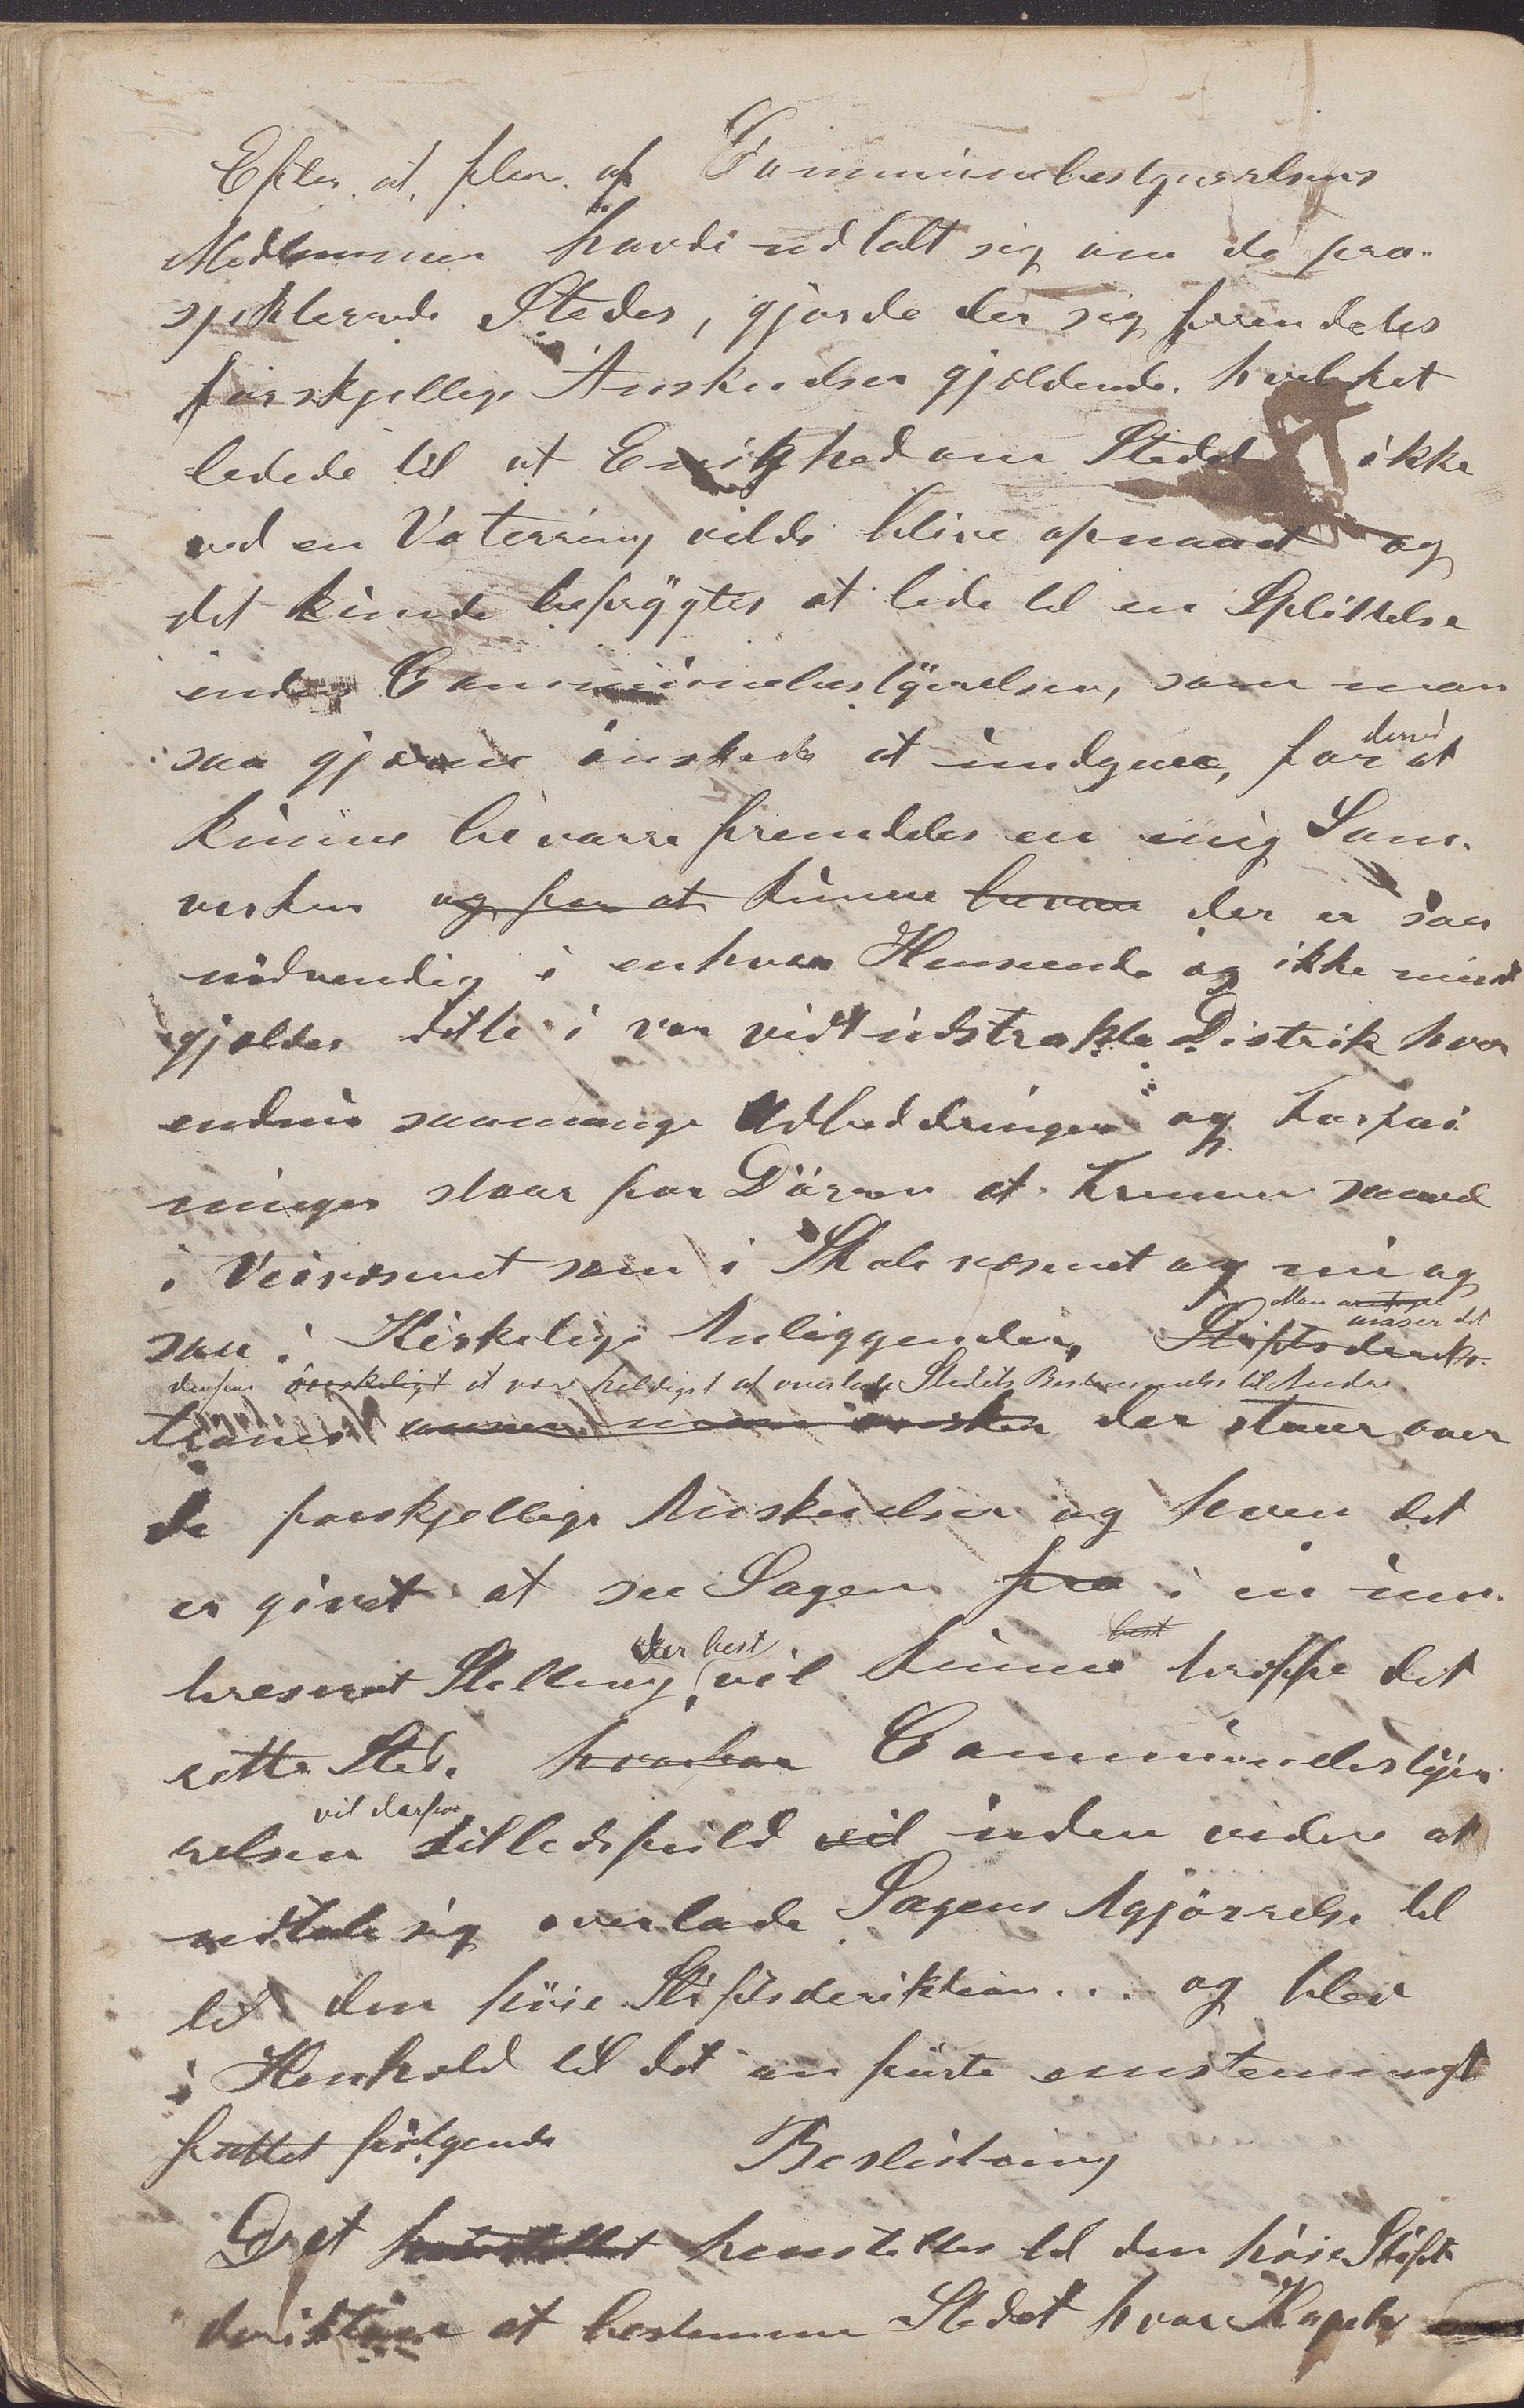 Efter at flere af Communebestyrrelsens
Medlemmer havde udtalt sig om de pro-
spekterede Steder, gjorde der sig fremdeles
forskjellige Anskuelser gjeldende. hvelket
ledede til at Enighed om Stedet ikke
ved en Votering vilde blive opnaaet og
det kunde befrygtes at lede til en Splittelse
inden Communebestyrelsen, som man
saa gjerne ønskede at undgaae, for derved at
kunne bevarre fremdeles en enig Sam-
verken og for at kunne bevare der er saa
nødvendig i enhver Henseende og ikke mindst
gjelder dette i vor vidtudstrakte Distrik hvor
endnu saamange Udbeddringer og Forføi
ninger staar for Døren at Fremme saavel
i Veivesenet som i Skolevesenet og nu og
saa i Kirkelige Anliggender, Stiftsderek- Man antager anser det
derfor ønskeligt at være heldigst at overlade Stedets Bestemmelse til Andre
tionen anser man ønsker der staar over
de forskjellige Anskuelser og hvem det
er givet at see Sagen fra i en uin-
treseret Stelling, der best vil kunne best treffe det
rette Sted. hvorfor Communebestyr
relsen vil derfor tilledsfuld vil uden videre at
udtale sig overlade Sagens Agjørrelse til
til den høie Stiftsderiktion... og blev
i Henhold til det anførte enstemmigt
fattet følgende
Beslutning
Det henstilles til den høie Stifts
deriktion at bestemme Stedet hvor Kapel